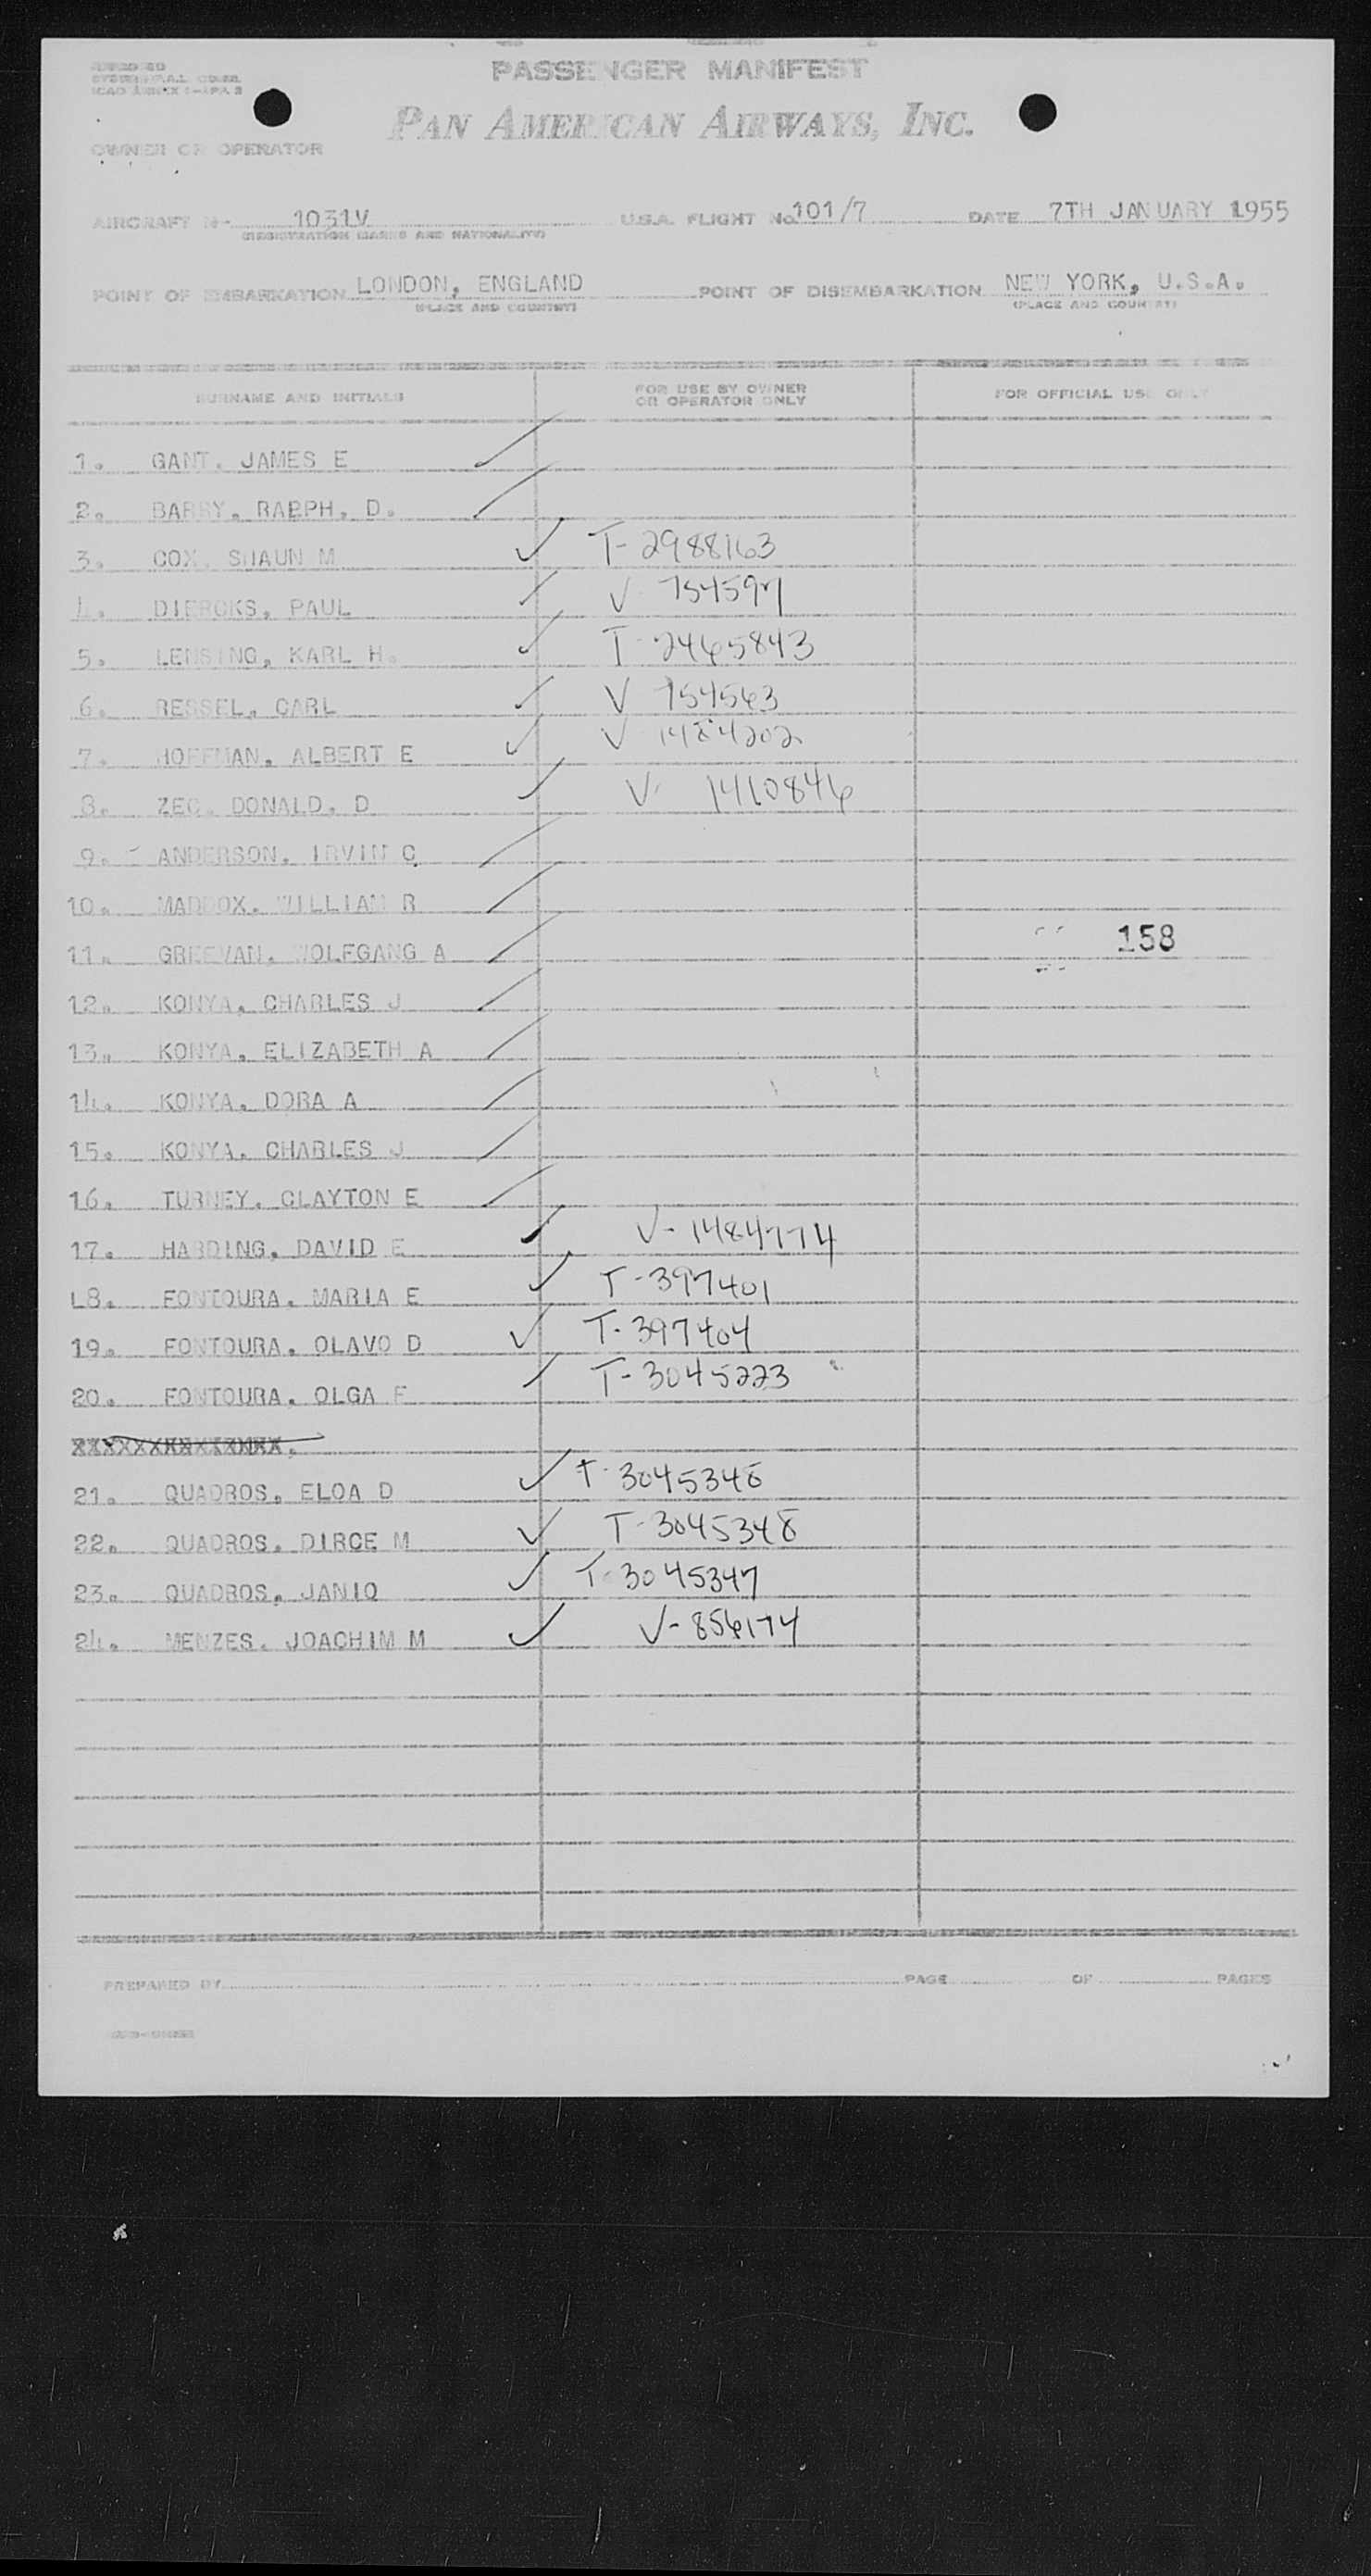 PASSENGER MANIFEST
PAN AMERICAN AIRWAYS, INC.
OWNER OR OPERATOR
AIRCRAFT N- 1031V U.S.A. FLIGHT No. 101/7 DATE 7TH JANUARY 1955
(REGISTRATION MARKS AND NATIONALITY)
POINT OF EMBARKATION LONDON, ENGLAND POINT OF DISEMBARKATION NEW YORK, U.S.A.
(PLACE AND COUNTRY) (PLACE AND COUNTRY)
SURNAME AND INITIALS FOR USE BY OWNER OR OPERATOR ONLY FOR OFFICIAL USE ONLY
1. GANT. JAMES E
2. BARRY. RALPH. D.
3. COX. SHAUN M T-2988163
4. DIERCKS, PAUL V 754597
5. LENSING, KARL H. T-2465843
6. RESSEL, CARL V 754563
7. HOFFMAN, ALBERT E V-1484202
8. ZEC. DONALD. D V- 1410846
9. ANDERSON. IRVIN C
10. MADDOX. WILLIAM R
11. GREEVAN. WOLFGANG A 158
12. KONYA, CHARLES J
13. KONYA, ELIZABETH A
14. KONYA. DORA A
15. KONYA. CHARLES J
16. TURNEY. CLAYTON E
17. HARDING, DAVID E V-1484774
18. FONTOURA. MARIA E T-397401
19. FONTOURA. OLAVO D T-397404
20. FONTOURA. OLGA F T-3045223
21. QUADROS, ELOA D T-3045346
22. QUADROS. DIRCE M T-3045348
23. QUADROS, JANIO T-3045347
24. MENZES. JOACHIM M V-856174
PREPARED BY PAGE OF PAGES